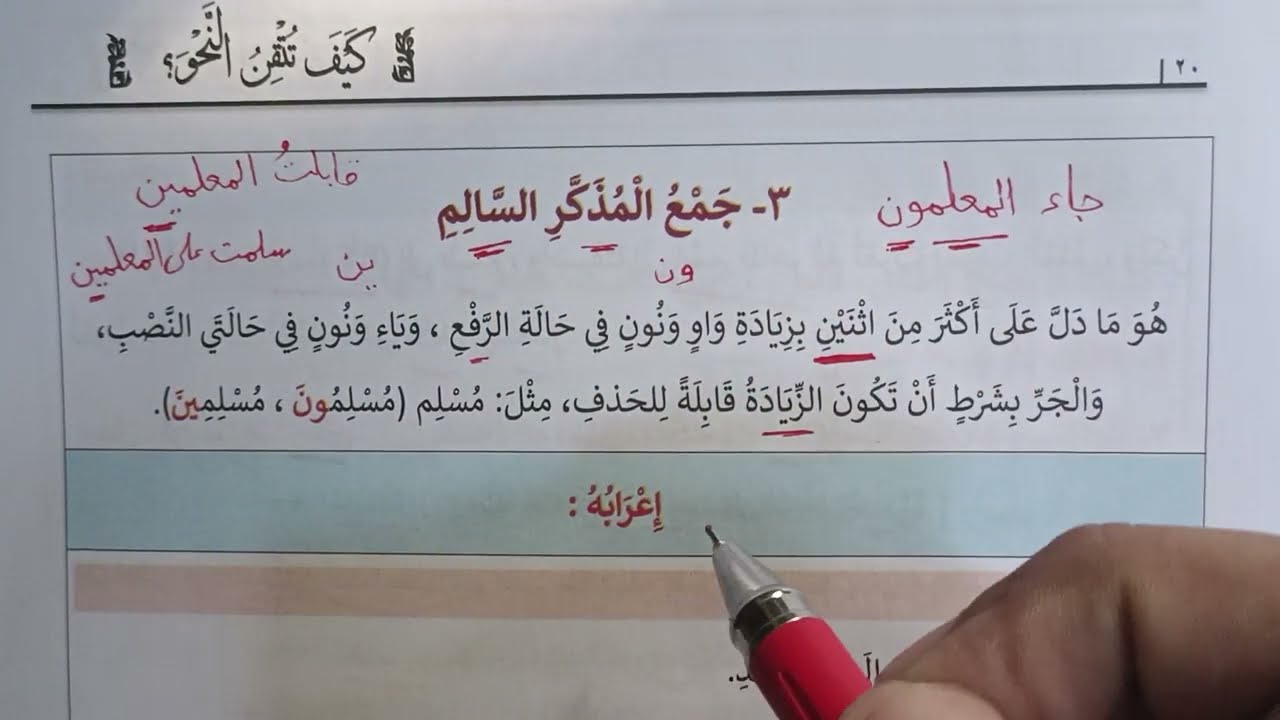 ٢٠
كَيْفَ تُتْقِنُ النَّحْوَ؟
جاء المعلمون
٣- جَمْعُ الْمُذَكَّرِ السَّالِمِ
قابلتُ المعلمين
سلمت على المعلمين
ون
ين
هُوَ مَا دَلَّ عَلَى أَكْثَرَ مِنَ اثْنَيْنِ بِزِيَادَةِ وَاوٍ وَنُونٍ فِي حَالَةِ الرَّفْعِ ، وَيَاءٍ وَنُونٍ فِي حَالَتَي النَّصْبِ،
وَالْجَرِّ بِشَرْطِ أَنْ تَكُونَ الزِّيَادَةُ قَابِلَةً لِلحَذفِ، مِثْلَ: مُسْلِم (مُسْلِمُونَ ، مُسْلِمِينَ).
إِعْرَابُهُ :